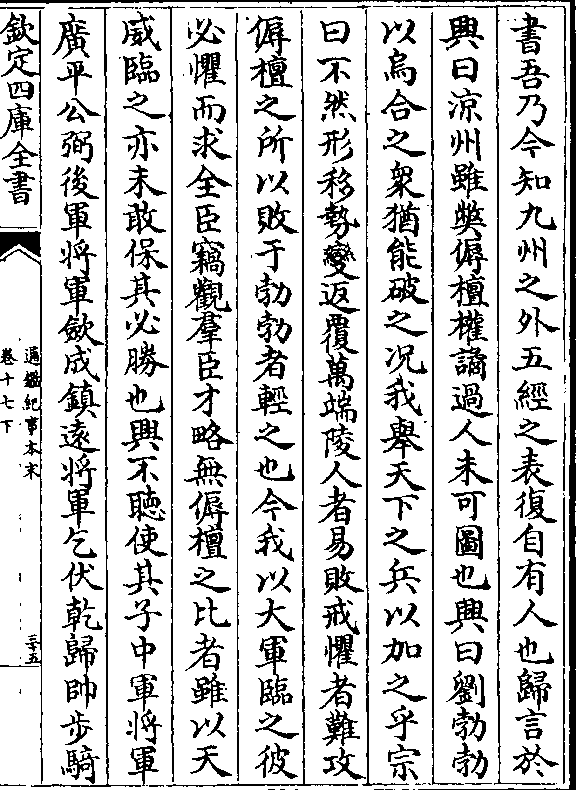 書吾乃今知九州之外五經之表復自有人也歸言於
興曰涼州雖弊傉檀權譎過人未可圖也興曰劉勃勃
以烏合之衆猶能破之况我舉天下之兵以加之乎宗
曰不然形移勢變返覆萬端陵人者易敗戒懼者難攻
傉檀之所以敗于勃勃者輕之也今我以大軍臨之彼
必懼而求全臣竊觀羣臣才略無傉檀之比者雖以天
威臨之亦未敢保其必勝也興不聽使其子中軍將軍
廣平公弼後軍將軍斂成鎮遠將軍乞伏乾歸帥步騎
欽定四庫全書
通鑑紀事本末
卷十七下
三十五